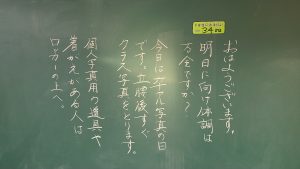 34
おはようございます。
明日に向け体調は
万全ですか?
今日は写真の日
です。立腰後すぐ
クラス写真をとります。
個人写真用の道具や
着がえがある人は
ロッカーの上へ。